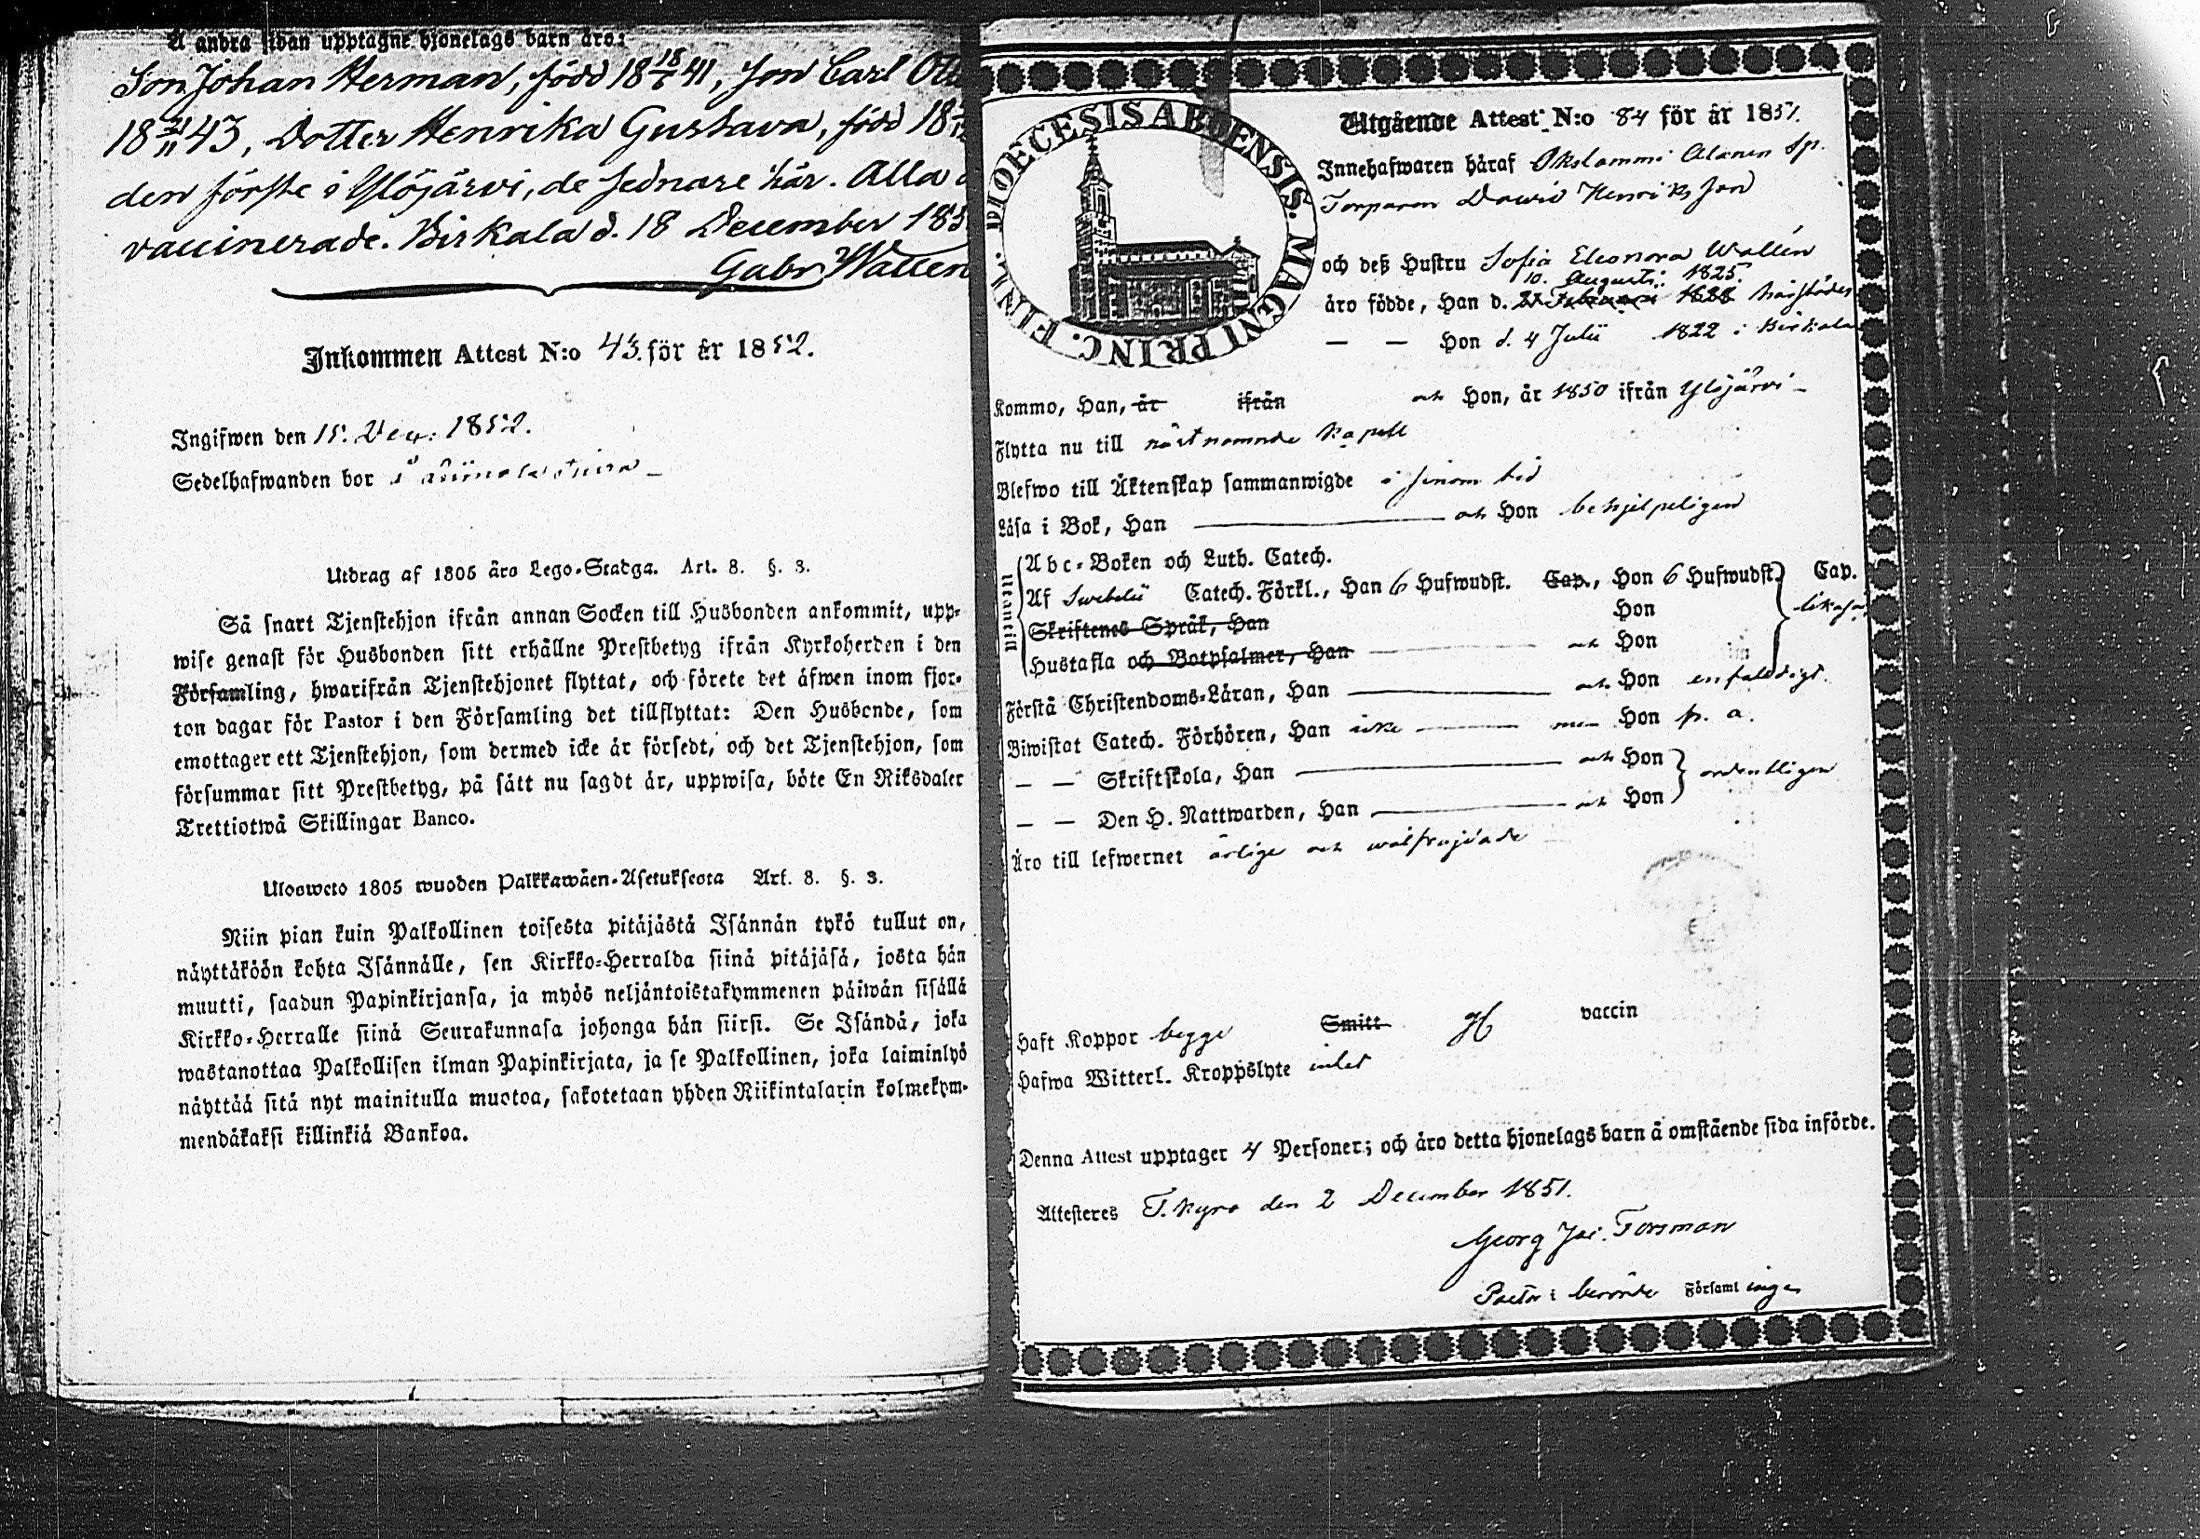 Å andra sidan upptagne hjonelags barn äro:
Son Johan Herman, född 18 18/1 41, son Carl
18 21/11 43, Dotter Henrika Gustava, född 18
den förste i Ylöjärvi, de sednare här. Alla
vaccinerade. Birkala d. 18 December 185
Gabr Wallen
Inkommen Attest N:o 43. för år 1852.
Ingifwen den 15. 1852.
Sedelhafwanden bor i
Utdrag af 1805 års Lego-Stadga. Art. 8. §. 3.
Så snart Tjenstehjon ifrån annan Socken till Husbonden ankommit, upp-
wise genast för Husbonden sitt erhållne Prestbetyg ifrån Kyrkoherden i den
Församling, hwarifrån Tjenstehjonet flyttat, och förete det äfwen inom fjor-
ton dagar för Pastor i den Församling det tillflyttat: Den Husbonde, som
emottager ett Tjenstehjon, som dermed icke är försedt, och det Tjenstehjon, som
försummar sitt Prestbetyg, på sätt nu sagdt är, uppwisa, böte En Riksdaler
Trettiotwå Skillingar Banco.
Ulosweto 1805 wuoden Palkkawäen-Asetuksesta Art. 8. §. 3.
Niin pian kuin Palkollinen toisesta pitäjästä Isännän tykö tullut on,
näyttäköön kohta Isännälle, sen Kirkko-Herralda siinä pitäjäsä, josta hän
muutti, saadun Papinkirjansa, ja myös neljäntoistakymmenen päiwän sisällä
Kirkko-Herralle siinä Seurakunnasa johonga hän siirsi. Se Isändä, joka
wastanottaa Palkollisen ilman Papinkirjata, ja se Palkollinen, joka laiminlyö
näyttää sitä nyt mainitulla muotoa, sakotetaan yhden Riikintalarin kolmekym-
mendäkaksi killinkiä Bankoa.
DIOECESIS ABOENSIS. MAGNI PRINC. FINL.
Utgående Attest N:o 84 för år 1851.
Innehafwaren häraf Okslammi Alanen
Torparen Dawid Henriksson
och deß Hustru Sofia Eleonora Wallén
10. Augusti 1825
äro födde, Han d. härstädes
— — Hon d. 4 Julii 1822 i Birkala
Kommo, Han, år ifrån och Hon, år 1850 ifrån Ylöjärvi
Flytta nu till näst nemnde Kapell
Blefwo till Äktenskap sammanwigde i sinom tid
Läsa i Bok, Han och Hon behjelpeligen
Utantill
Abc-Boken och Luth. Catech.
Af Swebelii Catech. Förkl., Han 6 Hufwudst. Cap., Hon 6 Hufwudst. Cap.
Skriftenes Språk, Han Hon
Hustafla och Botpsalmer, Han och Hon
Förstå Christendoms-Läran, Han och Hon enfaldigt.
Biwistat Catech. Förhören, Han icke men Hon p. a.
— — Skriftskola, Han och Hon
— — Den H. Nattwarden, Han och Hon ordentligen
Äro till lefwernet ärlige och wälfrejdade
Haft Koppor begge Smitt vaccin
Hafwa Witterl. Kroppslyte intet
Denna Attest upptager 4 Personer; och äro detta hjonelags barn å omstående sida införde.
Attesteres T.kyro den 2 December 1851.
Georg Jac. Forsman
Pastor i berörde Församlingen